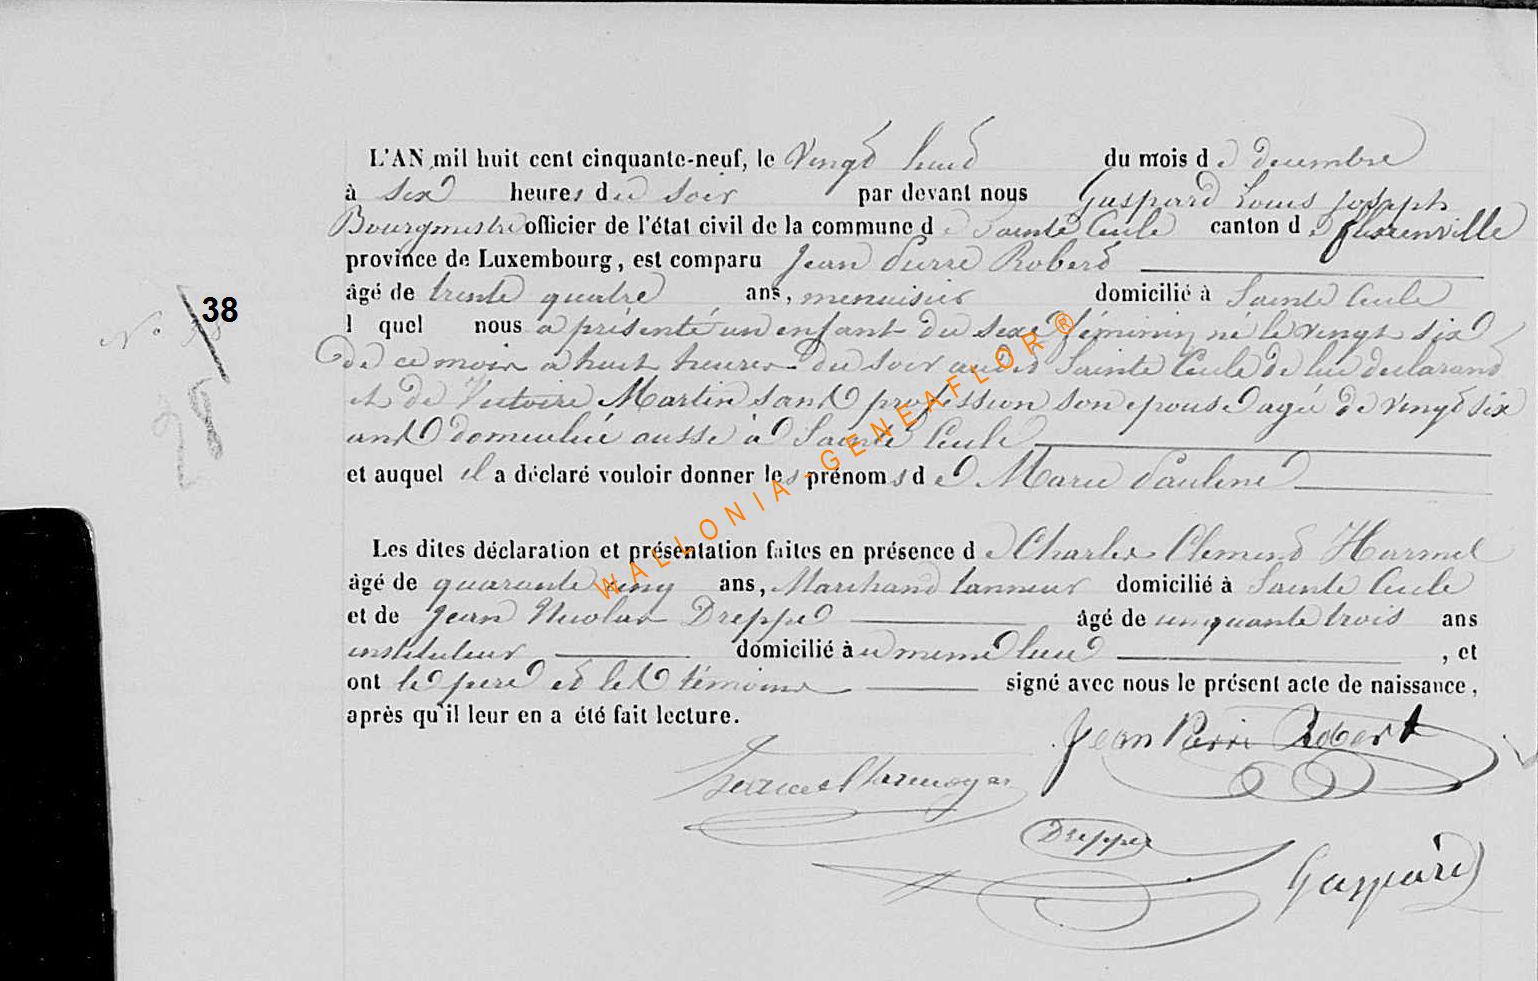 L'AN mil huit cent cinquante-neuf, le Vingt huit du mois de decembre
à six heures du soir par devant nous Gaspard Louis Joseph
Bourgmestre officier de l'état civil de la commune de Sainte Cecile canton de florenville
province de Luxembourg, est comparu Jean Pierre Robert
âgé de trente quatre ans, menuisier domicilié à Sainte Cecile
38
N°
l quel nous a présenté un enfant du sexe féminin né le vingt six
de ce mois a huit heures du soir audit Sainte Cecile de lui declarant
et de Victoire Martin sans profession son epouse agée de vingt six
ans domiciliée aussi à Sainte Cecile
et auquel il a déclaré vouloir donner les prénoms de Marie Pauline
WALLONIA-GENEAFLOR®
Les dites déclaration et présentation faites en présence de Charles Clement Harmel
âgé de quarante cinq ans, Marchand tanneur domicilié à Sainte Cecile
et de Jean Nicolas Dreppe âgé de cinquante trois ans
instituteur domicilié au meme lieu, et
ont le pere et les témoins signé avec nous le présent acte de naissance,
après qu'il leur en a été fait lecture.
Jean Pierre Robert
Dreppe
Gaspard